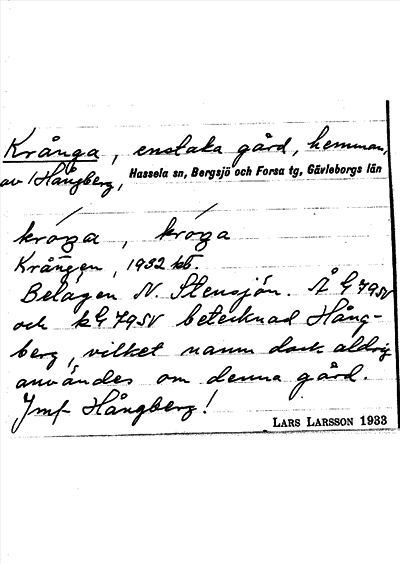 Krånga, enstaka gård, hemman,
av Hångberg, Hassela sn, Bergsjö och Forsa tg, Gävleborgs län
króŋa, króŋa
Krången, 1932 kb.
Belägen N. Stensjön. Å G 79 SV
och kG 79 SV betecknad Hång-
berg, vilket namn dock aldrig
användes om denna gård.
Jmf Hångberg!
LARS LARSSON 1933